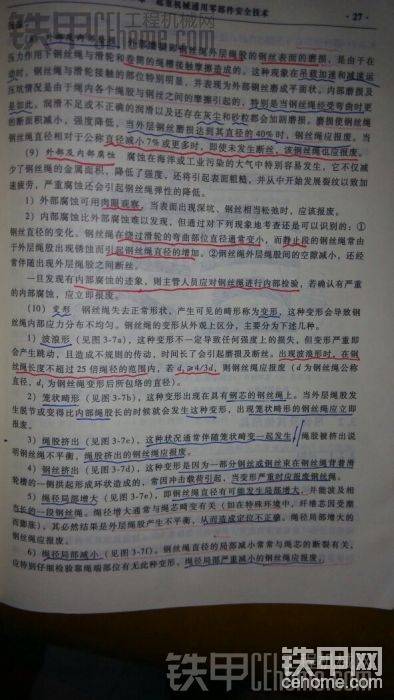 起重机械通用零部件安全技术 ·27·
铁甲 工程机械网
CEhome.com
压力作用下钢丝绳与滑轮和卷筒的绳槽接触摩擦造成的。这种现象在吊载加速和减速运
动时,钢丝绳与滑轮接触的部位特别明显,并表现为外部钢丝磨成平面状。内部磨损及
压坑情况是由于绳内各个绳股与钢丝之间的摩擦引起的,特别是当钢丝绳经受弯曲时更
是如此。润滑不足或不正确的润滑以及还存在灰尘和砂粒都会加剧磨损。磨损使钢丝绳
的断面积减小,强度降低,当外层钢丝磨损达到其直径的40%时,钢丝绳应报废。当
钢丝绳直径相对于公称直径减小7%或更多时,即使未发生断丝,该钢丝绳也应报废。
(9)外部及内部腐蚀 腐蚀在海洋或工业污染的大气中特别容易发生,它不仅减
少了钢丝绳的金属面积,降低了强度,还将引起表面粗糙,并从中开始发展裂纹以致加
速疲劳,严重腐蚀还会引起钢丝绳弹性的降低。
1)外部腐蚀可用肉眼观察,当表面出现深坑、钢丝相当松弛时,应该报废。
2)内部腐蚀比外部腐蚀难以发现,但通过对下列现象考查还是可以识别的:①
钢丝直径的变化。钢丝绳在绕过滑轮的弯曲部位直径通常变小,而静止段的钢丝绳常由
于外层绳股出现锈蚀而引起钢丝绳直径的增加。②钢丝绳外层绳股间的空隙减小,还经
常伴随出现外层绳股之间断丝。
一旦发现有内部腐蚀的迹象,则主管人员应对钢丝绳进行内部检验,若确认有严重
的内部腐蚀,应立即报废。
(10)变形 钢丝绳失去正常形状,产生可见的畸形称为变形,这种变形会导致钢
丝绳内部应力分布不均匀。钢丝绳的变形从外观上区分,主要分为下述几种。
1)波浪形(见图3-7a),这种变形不一定导致任何强度上的损失,但变形严重即
会产生跳动,且造成不规则的传动,时间长了会引起磨损及断丝。出现波浪形时,在钢
丝绳长度不超过25倍绳径的范围内,若d₁≥4/3d,则钢丝绳应报废(d为钢丝绳公称
直径,d₁为钢丝绳变形后所包络的直径)。
2)笼状畸形(见图3-7b),这种变形出现在具有钢芯的钢丝绳上,当外层绳股发
生脱节或变得比内部绳股长的时候就会发生这种变形,出现笼状畸形的钢丝绳应立即
报废。
3)绳股挤出(见图3-7c),这种状况通常伴随笼状畸变一起发生,绳股被挤出说
明钢丝绳不平衡,绳股挤出的钢丝绳应报废。
4)钢丝挤出(见图3-7d),这种变形是因为一部分钢丝或钢丝束在钢丝绳背着滑
轮槽的一侧拱起形成环状造成的,常因冲击载荷引起,当变形严重时应报废钢丝绳。
5)绳径局部增大(见图3-7e),即钢丝绳直径有可能发生局部增大,并能波及相
当长的一段钢丝绳。绳径增大通常与绳芯畸变有关(如在特殊环境中,纤维芯因受潮
而膨胀),其必然结果是外层绳股产生不平衡,从而造成定位不正确。绳径局部增大的
钢丝绳应报废。
6)绳径局部减小(见图3-7f)。钢丝绳直径的局部减小常常与绳芯的断裂有关,
应特别仔细检验靠绳端部位有无此种变形。绳径局部严重减小的钢丝绳应报废。
铁甲 CEhome.com
铁甲网
cehome.com